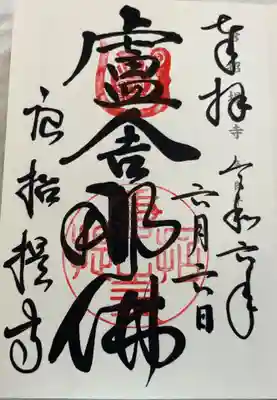 奉拝
令和六年
六月六日
盧舎那佛
唐招提寺